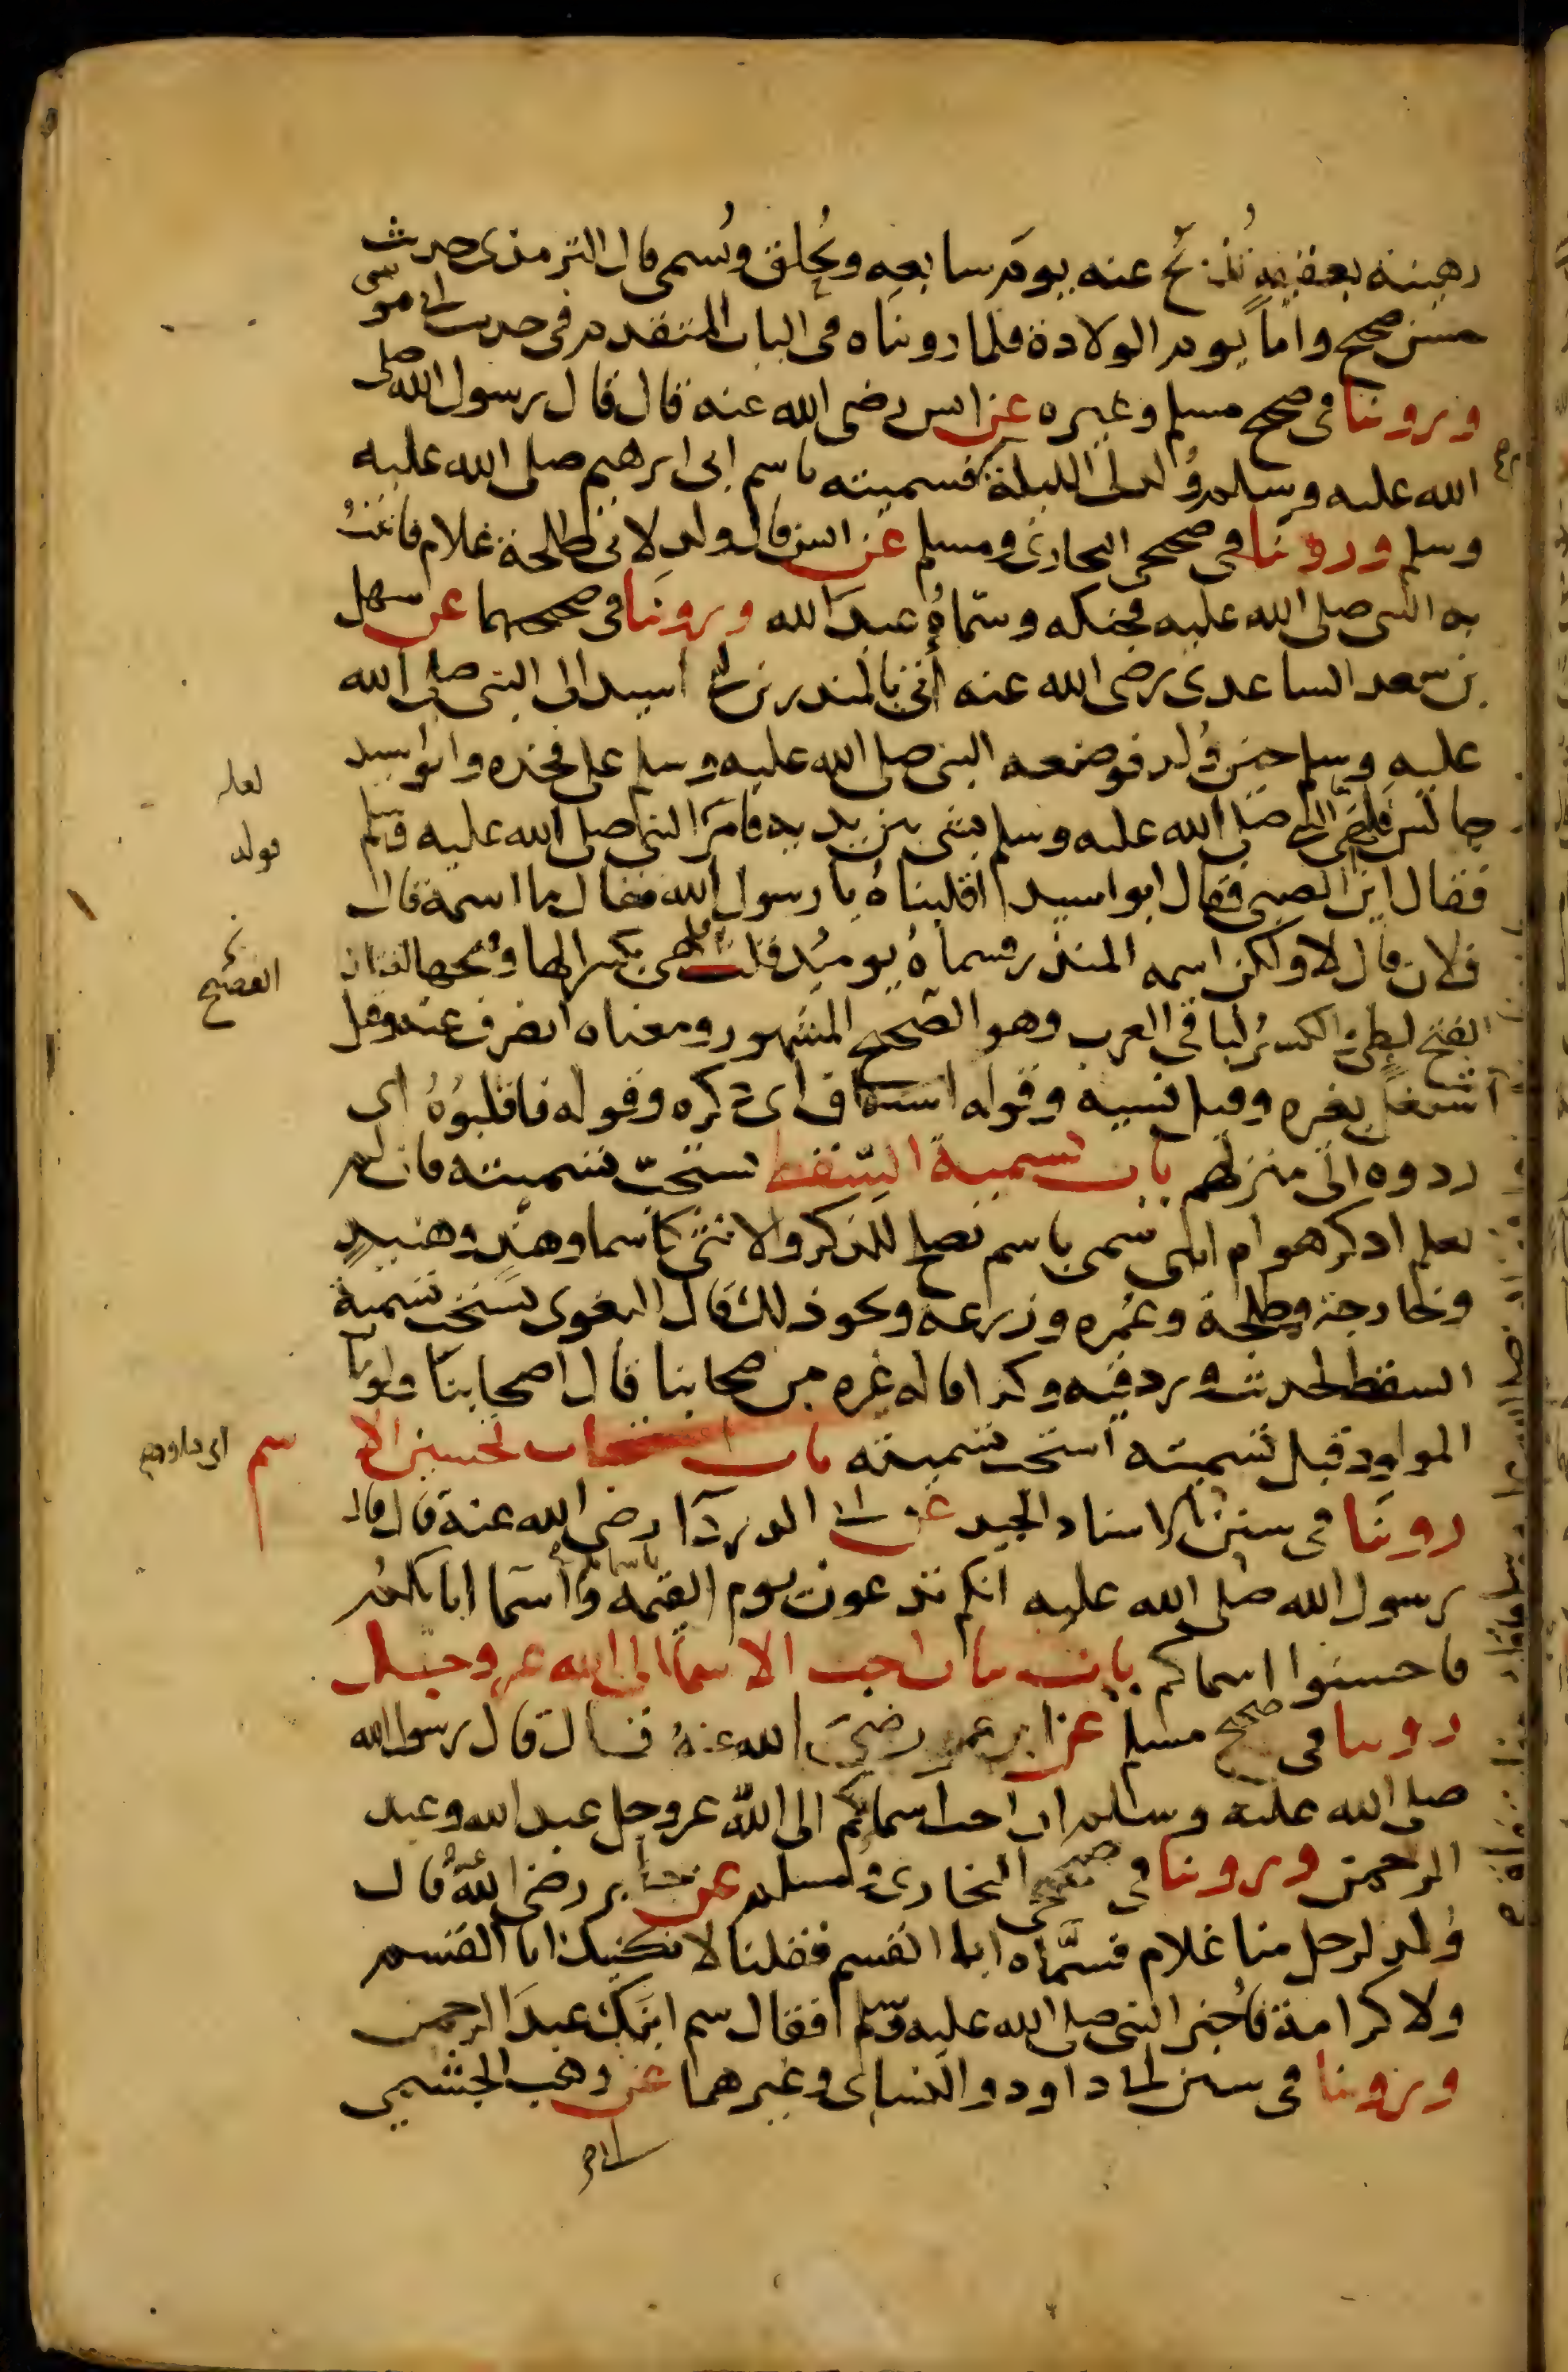 رهينة بعقيقته تذبح عنه يوم سابعه ويحلق ويسمى قال الترمذى حديث
حسن صحيح واما يوم الولادة فلما رويناه فى الباب المتقدم فى حديث ابى موسى
وروينا فى صحيح مسلم وغيره عن انس رضى الله عنه قال قال رسول الله صلى
الله عليه وسلم ولد لى الليلة فسميته باسم ابى ابرهيم صلى الله عليه
وسلم وروينا فى صحيحى البخارى ومسلم عن انس قال ولد لابى طلحة غلام فاتيت
به النبى صلى الله عليه فحنكه وسماه عبد الله وروينا فى صحيحهما عن سهل
بن سعد الساعدى رضى الله عنه اتى بالمنذر بن ابى اسيد الى النبى صلى الله
عليه وسلم حين ولد فوضعه النبى صلى الله عليه وسلم على فخذه وابو اسيد
جالس فلهى النبى صلى الله عليه وسلم بشى بين يديه فامر النبى صلى الله عليه وسلم
فقال اين الصبى فقال ابو اسيد اقلبناه يا رسول الله فقال ما اسمه قال
فلان قال لا ولكن اسمه المنذر فسماه يوميذ قلت لهى بكسر الها وفتحها لغتان
الفتح لطى والكسر لباقى العرب وهو الصحيح المشهور ومعناه انصرف عنه وقيل
اشتغل بغيره وقيل نسيه وقوله استفاق اى ذكره وقوله فاقلبوه اى
ردوه الى منزلهم باب تسمية السقط يستحب تسميته فان لم
يعلم اذكر هو ام انثى سمى باسم يصلح للذكر والانثى كاسما وهند وهنيدة
وخارجة وطلحة وعميره وزرعة ونحو ذلك قال البغوى يستحب تسمية
السقط لحديث ورد فيه وكذا قاله غيره من صحابنا قال اصحابنا ولو مات
المولود قبل تسميته استحب تسميته باب استحباب تحسين الا سم
روينا فى سنن ابى داود بالاسناد الجيد عن ابى الدردآ رضى الله عنه قال قال
رسول الله صلى الله عليه انكم تدعون يوم القيمة باسمائكم واسما ابايكم
فاحسنوا اسماكم باب بيان احب الاسما الى الله عز وجل
روينا فى صحيح مسلم عن ابن عمر رضى الله عنه قال قال رسول الله
صلى الله عليه وسلم ان احب اسمائكم الى الله عز وجل عبد الله وعبد
الرحمن وروينا فى صحيحى البخارى ومسلم عن جابر رضى الله عنه قال
ولد لرجل منا غلام فسماه ابا القسم فقلنا لا نكنيك ابا القسم
ولا كرامة فاخبر النبى صلى الله عليه وسلم فقال سم ابنك عبد الرحمن
وروينا فى سنن ابى داود والنساى وغيرهما عن وهب الجشمى
لعله
تولد
الفصيح